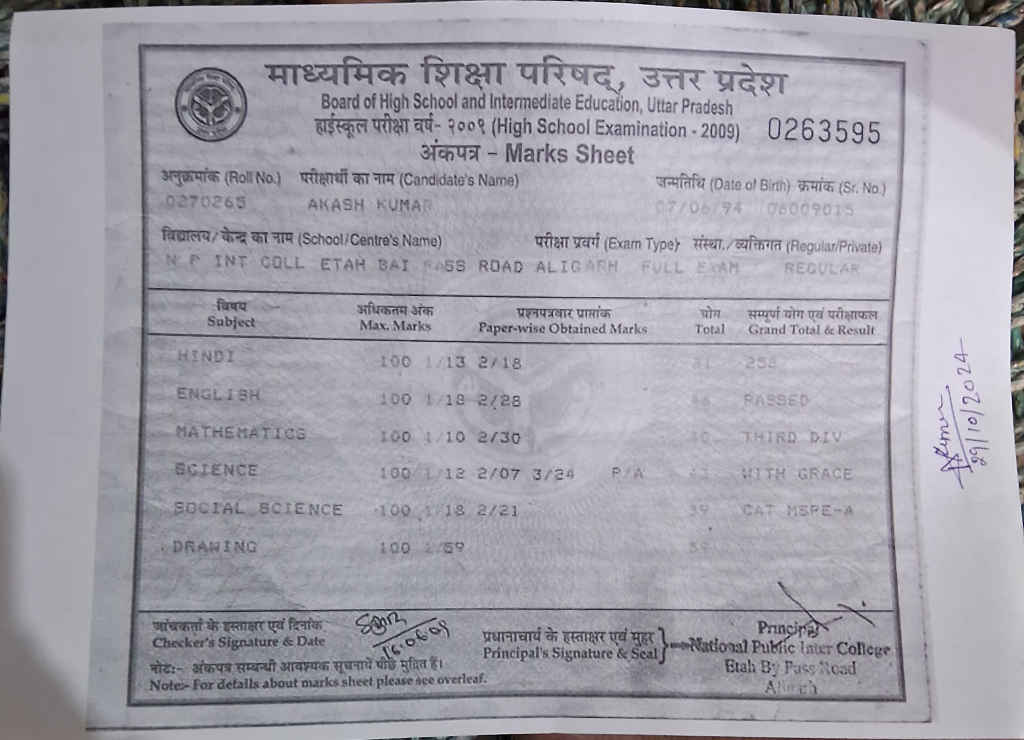 माध्यमिक शिक्षा परिषद्, उत्तर प्रदेश
Board of High School and Intermediate Education, Uttar Pradesh
हाईस्कूल परीक्षा वर्ष- २००९ (High School Examination - 2009) 0263595
अंकपत्र - Marks Sheet
अनुक्रमांक (Roll No.) परीक्षार्थी का नाम (Candidate's Name) जन्मतिथि (Date of Birth) क्रमांक (Sr. No.)
0270265 AKASH KUMAR 07/06/94 06009015
विद्यालय/केन्द्र का नाम (School/Centre's Name) परीक्षा प्रवर्ग (Exam Type) संस्था./व्यक्तिगत (Regular/Private)
N P INT COLL ETAH BAI PASS ROAD ALIGARH FULL EXAM REGULAR
विषय अधिकतम अंक प्रश्नपत्रवार प्राप्तांक योग सम्पूर्ण योग एवं परीक्षाफल
Subject Max. Marks Paper-wise Obtained Marks Total Grand Total & Result
HINDI 100 1/13 2/18
ENGLISH 100 1/18 2/28 46 PASSED
MATHEMATICS 100 1/10 2/30 40 THIRD DIV
SCIENCE 100 1/12 2/07 3/24 P/A WITH GRACE
SOCIAL SCIENCE 100 1/18 2/21 39 CAT MSPE-A
DRAWING 100 1/59 59
जांचकर्ता के हस्ताक्षर एवं दिनांक
Checker's Signature & Date
16.06.09
प्रधानाचार्य के हस्ताक्षर एवं मुहर
Principal's Signature & Seal
Principal
National Public Inter College
Etah By Pass Road
Aligarh
नोट:- अंकपत्र सम्बन्धी आवश्यक सूचनायें पीछे मुद्रित हैं।
Note:- For details about marks sheet please see overleaf.
29/10/2024